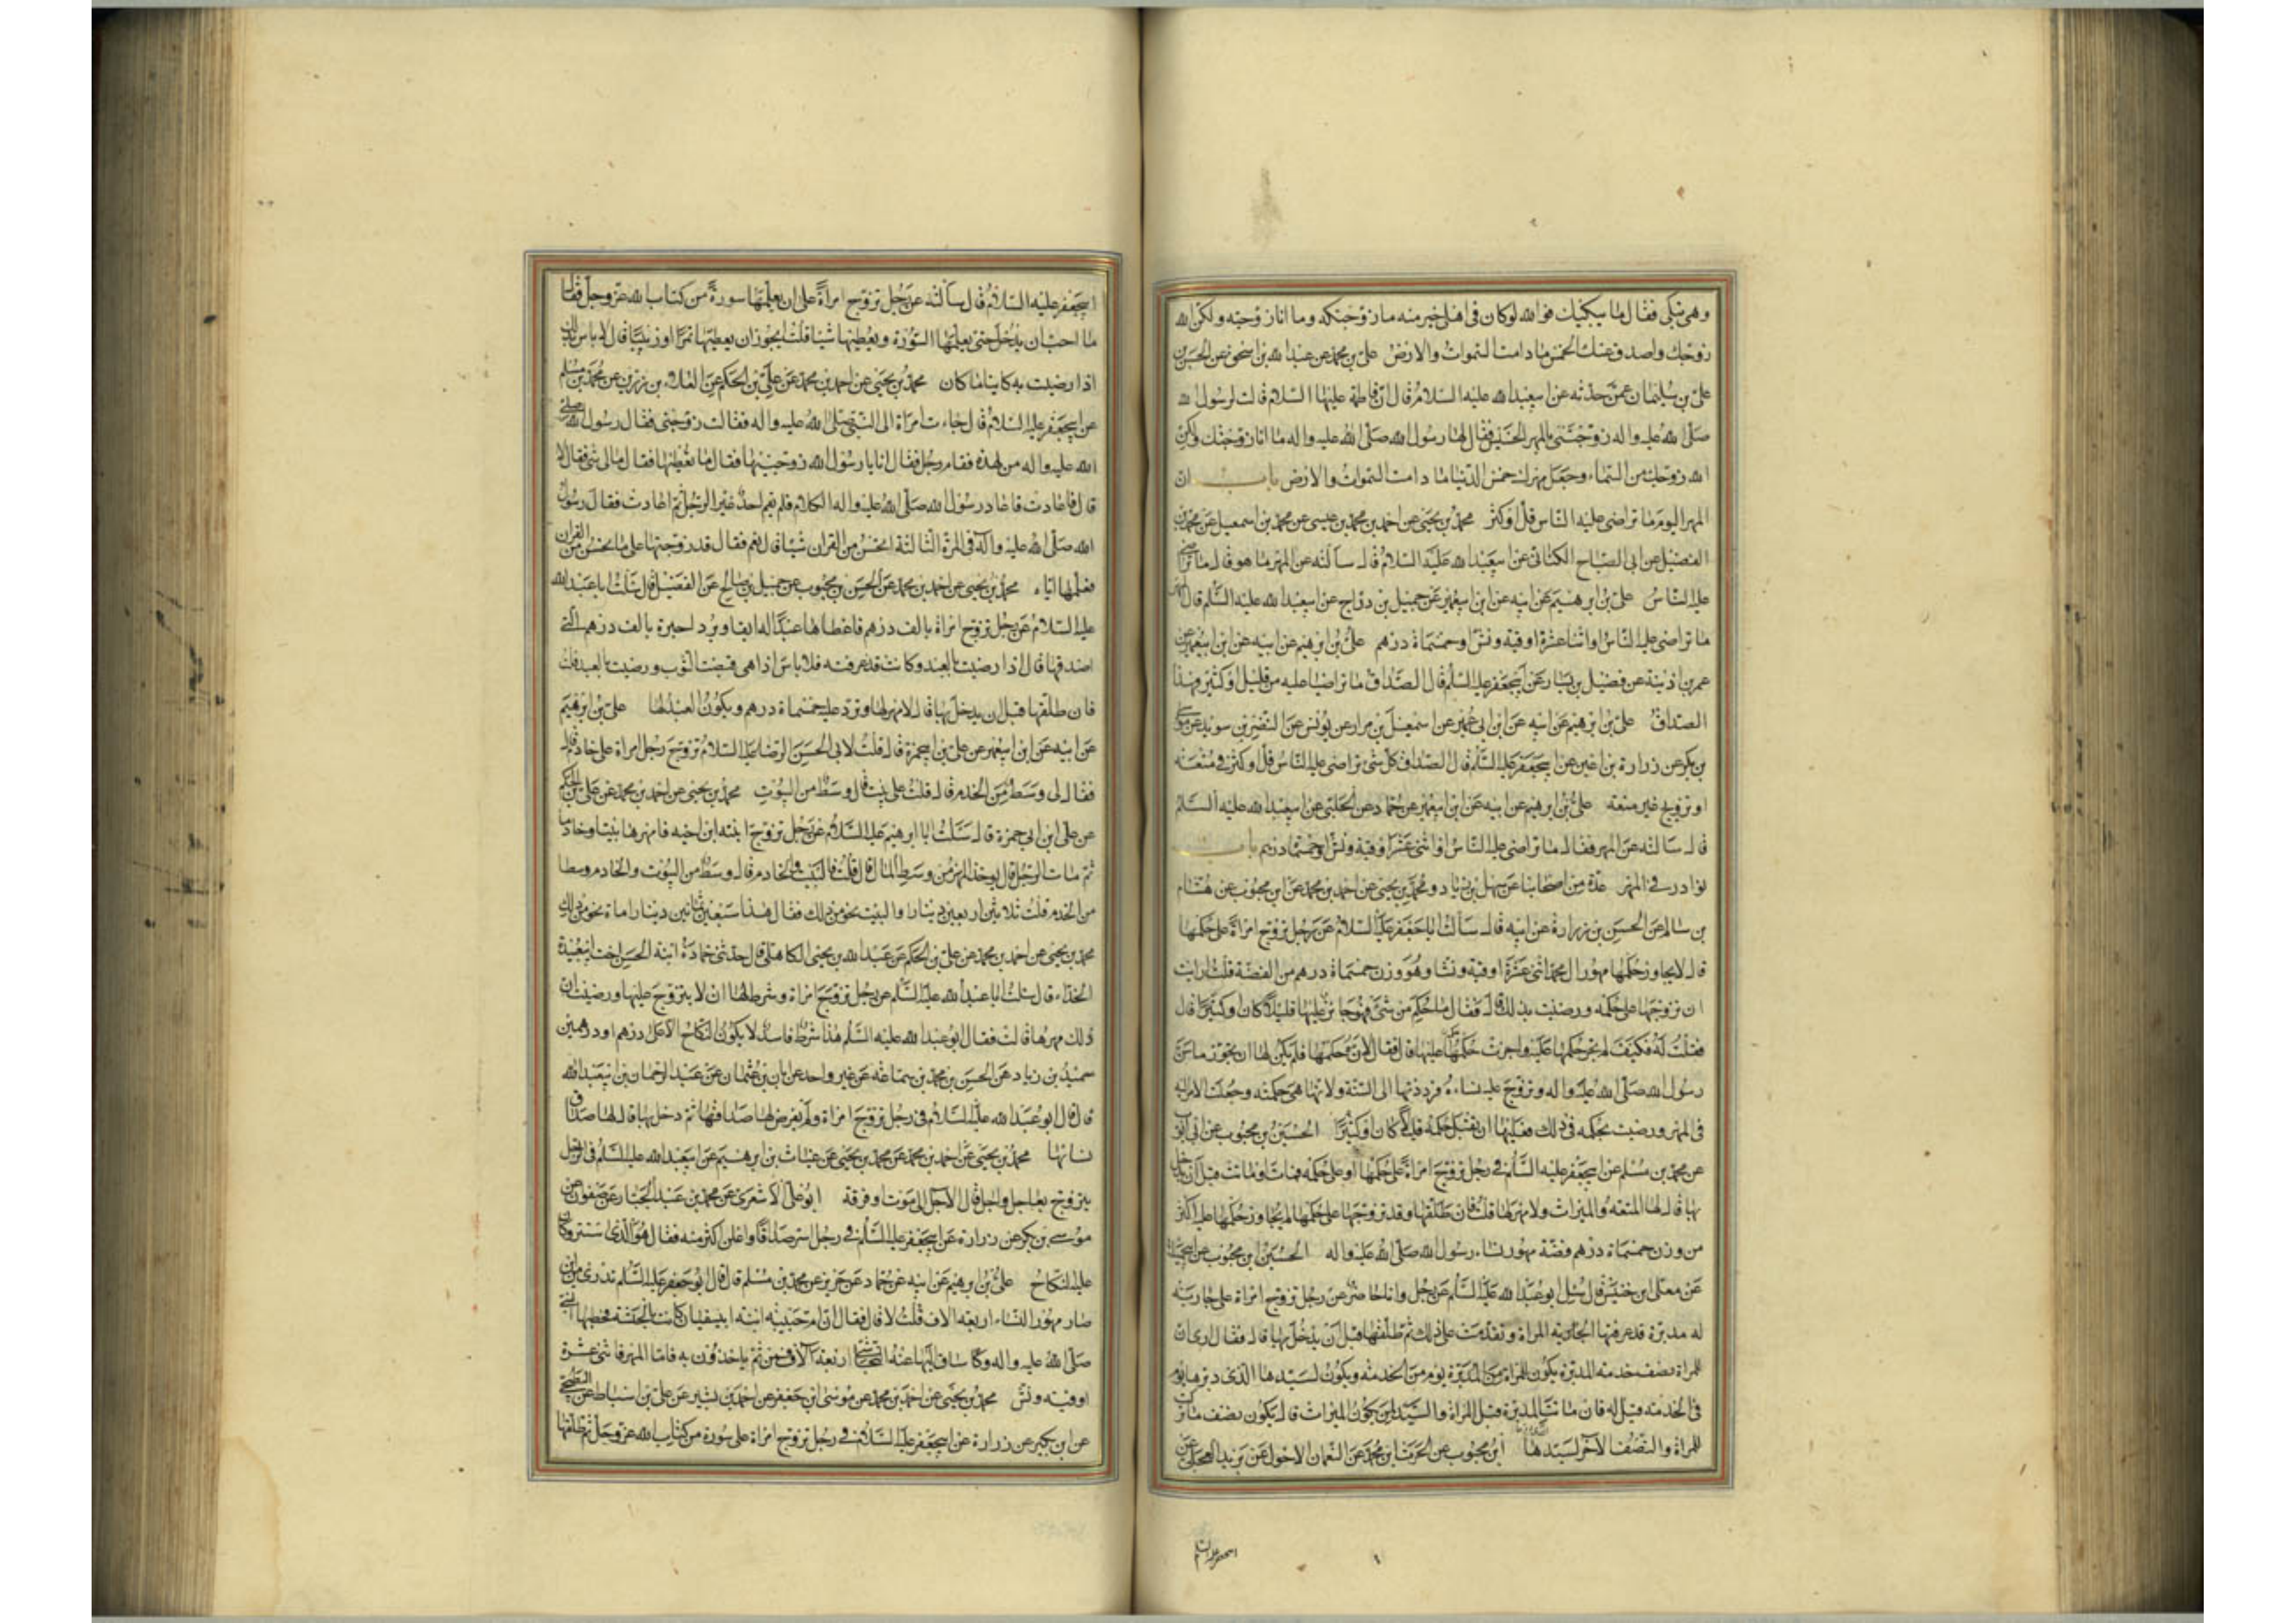 وهي تبكي فقال ما يبكيك فوالله لو كان في اهلي خير منه ما زوجتكه وما انا زوجته ولكن الله
زوجك واصدق عنك الخمس ما دامت السموات والارض علي بن محمد عن عبد الله بن اسحق عن الحسن بن
علي بن سليمان عمن حدثه عن ابيعبد الله عليه السلام قال ان فاطمة عليها السلام قالت لرسول الله
صلى الله عليه واله زوجتني بالمهر الخسيس فقال لها رسول الله صلى الله عليه واله ما انا زوجتك ولكن
الله زوجك من السماء وجعل مهرك خمس الدنيا ما دامت السموات والارض باب ان
المهر اليوم ما تراضى عليه الناس قل او كثر محمد بن يحيى عن احمد بن محمد بن عيسى عن محمد بن اسمعيل عن محمد بن
الفضيل عن ابي الصباح الكناني عن ابيعبد الله عليه السلام قال سالته عن المهر ما هو قال ما تراضى
عليه الناس علي بن ابرهيم عن ابيه عن ابن ابيعمير عن جميل بن دراج عن ابيعبد الله عليه السلم قال المهر
ما تراضى عليه الناس او اثنا عشرة اوقية ونش او خمسماة درهم علي بن ابرهيم عن ابيه عن ابن ابيعمير عن
عمر بن اذينة عن فضيل بن يسار عن ابيجعفر عليه السلم قال الصداق ما تراضيا عليه من قليل او كثير فهذا
الصداق علي بن ابرهيم عن ابيه عن ابن ابي عمير عن اسمعيل بن مرار عن يونس عن النضر بن سويد عن موسى
بن بكر عن زرارة بن اعين عن ابيجعفر عليه السلم قال الصداق كل شئ تراضى عليه الناس قل او كثر في متعة
او تزويج غير متعة علي بن ابرهيم عن ابيه عن ابن ابيعمير عن حماد عن الحلبي عن ابيعبد الله عليه السلم
قال سالته عن المهر فقال ما تراضى عليه الناس او اثنى عشرة اوقية ونش او خمسماة درهم باب
نوادر في المهر عدة من اصحابنا عن سهل بن زياد ومحمد بن يحيى عن احمد بن محمد عن ابن محبوب عن هشام
بن سالم عن الحسن بن زرارة عن ابيه قال سالت ابا جعفر عليه السلام عن رجل تزوج امراة على حكمها
قال لا يجاوز حكمها مهور ال محمد اثنى عشرة اوقية ونشا وهو وزن خمسماة درهم من الفضة قلت ارايت
ان تزوجها على حكمه ورضيت بذلك قال فقال ما حكم من شئ فهو جائز عليها قليلا كان او كثيرا قال
فقلت له فكيف لم تجز حكمها عليه واجزت حكمه عليها قال فقال لانه حكمها فلم يكن لها ان تجوز ما سن
رسول الله صلى الله عليه واله وتزوج عليه نساءه فرددتها الى السنة ولانها هي حكمته وجعلت الامر اليه
في المهر ورضيت بحكمه في ذلك فعليها ان تقبل حكمه قليلا كان او كثيرا الحسن بن محبوب عن ابي ايوب
عن محمد بن مسلم عن ابيجعفر عليه السلم في رجل تزوج امراة على حكمها او على حكمه فمات او ماتت قبل ان يدخل
بها قال لها المتعة والميراث ولا مهر لها قلت فان طلقها وقد تزوجها على حكمها لم يجاوز حكمها عليه اكثر
من وزن خمسماة درهم فضة مهور نساء رسول الله صلى الله عليه واله الحسن بن محبوب عن ابي جميلة
عن معلى بن خنيس قال سئل ابو عبد الله عليه السلم عن رجل وانا حاضر عن رجل تزوج امراة على جارية
له مدبرة قد عرفتها الجارية المراة وتقدمت على ذلك ثم طلقها قبل ان يدخل بها قال فقال ارى ان
للمراة نصف خدمة المدبرة يكون للمراة من المدبرة يوم من الخدمة ويكون لسيدها الذي دبرها يوم
في الخدمة قيل له فان ماتت المدبرة قبل المراة والسيد لمن يكون الميراث قال يكون نصف ما تركت
للمراة والنصف الاخر لسيدها ابن محبوب عن الحرث بن محمد عن النعمان الاحول عن بريد العجلي عن
ابيجعفر عليه السلم
ابيجعفر عليه السلام قال سالته عن رجل تزوج امراة على ان يعلمها سورة من كتاب الله عز وجل فقال
ما احب ان يدخل حتى يعلمها السورة ويعطيها شيئا قلت ايجوز ان يعطيها تمرا او زبيبا قال لا باس بذلك
اذا رضيت به كائنا ما كان محمد بن يحيى عن احمد بن محمد عن علي بن الحكم عن العلاء بن رزين عن محمد بن مسلم
عن ابيجعفر عليه السلام قال جاءت امراة الى النبي صلى الله عليه واله فقالت زوجني فقال رسول الله صلى
الله عليه واله من لهذه فقام رجل فقال انا يا رسول الله زوجنيها فقال ما تعطيها فقال ما لي شئ فقال لا
قال فاعادت فاعاد رسول الله صلى الله عليه واله الكلام فلم يقم احد غير الرجل ثم اعادت فقال رسول
الله صلى الله عليه واله في المرة الثالثة اتحسن من القران شيئا قال نعم فقال قد زوجتكها على ما تحسن من القران
فعلمها اياه محمد بن يحيى عن احمد بن محمد عن الحسن بن محبوب عن جميل بن صالح عن الفضيل قال سالت ابا عبد الله
عليه السلام عن رجل تزوج امراة بالف درهم فاعطاها عبدا له ابقا وبرد حبرة بالف درهم التي
اصدقها قال اذا رضيت بالعبد وكانت قد عرفته فلا باس اذا هي قبضت الثوب ورضيت بالعبد قلت
فان طلقها قبل ان يدخل بها قال لا مهر لها وترد عليه خمسماة درهم ويكون العبد لها علي بن ابرهيم
عن ابيه عن ابن ابيعمير عن علي بن ابيحمزة قال قلت لابي الحسن الرضا عليه السلام تزوج رجل امراة على خادم قال
فقال لي وسط من الخدم قال قلت على بيت قال وسط من البيوت محمد بن يحيى عن احمد بن محمد عن علي بن الحكم
عن علي ابن ابي حمزة قال سئلت ابا ابرهيم عليه السلام عن رجل تزوج ابنته ابن اخيه فامهرها بيتا وخادما
ثم مات الرجل قال يوخذ المهر من وسط المال قال قلت فالبيت والخادم قال وسط من البيوت والخادم وسطا
من الخدم قلت ثلاثين اربعين دينارا والبيت نحو من ذلك فقال هذا سبعين ثمانين دينارا ماة نحو من ذلك
محمد بن يحيى عن احمد بن محمد عن علي بن الحكم عن عبد الله بن يحيى الكاهلي قال حدثتني حمادة ابنة الحسن اخت ابيعبيدة
الحذاء قال سئلت ابا عبد الله عليه السلم عن رجل تزوج امراة وشرط لها ان لا يتزوج عليها ورضيت ان
ذلك مهرها قالت فقال ابو عبد الله عليه السلم هذا شرط فاسد لا يكون النكاح الا على درهم او درهمين
حميد بن زياد عن الحسن بن محمد بن سماعه عن غير واحد عن ابان بن عثمان عن عبد الرحمان بن ابيعبد الله
قال قال ابو عبد الله عليه السلام في رجل تزوج امراة ولم يفرض لها صداقها ثم دخل بها قال لها صداق
نسائها محمد بن يحيى عن احمد بن محمد عن محمد بن يحيى عن غياث بن ابرهيم عن ابيعبد الله عليه السلم في الرجل
يتزوج بعاجل واجل قال الاجل الى موت او فرقة ابو علي الاشعري عن محمد بن عبد الجبار عن صفوان عن
موسى بن بكر عن زرارة عن ابيجعفر عليه السلم في رجل اسر صداقا واعلن اكثر منه فقال هو الذي اسر وكان
عليه النكاح علي بن ابرهيم عن ابيه عن حماد عن حريز عن محمد بن مسلم قال قال ابو جعفر عليه السلم تدري من اين
صار مهور النساء اربعة الاف قلت لا قال فقال ان ام حبيبة ابنة ابيسفيان كانت بالحبشة فخطبها النبي
صلى الله عليه واله وسلم ساق اليها عنه النجاشي اربعة الاف فمن ثم ياخذون به فاما المهر فاثنى عشرة
اوقية ونش محمد بن يحيى عن احمد بن محمد عن موسى بن جعفر عن احمد بن بشير عن علي بن اسباط عن البطيخي
عن ابن بكير عن زرارة عن ابيجعفر عليه السلام في رجل تزوج امراة على سورة من كتاب الله عز وجل ثم طلقها